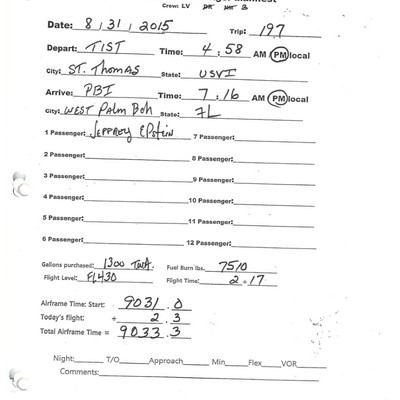 Crew: LV
Date: 8 / 31 / 2015 Trip: 197
Depart: TIST Time: 4 : 58 AM / PM local
City: ST. THOMAS State: USVI
Arrive: PBI Time: 7 : 16 AM / PM local
City: WEST PALM BCH State: FL
1 Passenger: JEFFREY EPSTEIN 7 Passenger:
2 Passenger: 8 Passenger:
3 Passenger: 9 Passenger:
4 Passenger: 10 Passenger:
5 Passenger: 11 Passenger:
6 Passenger: 12 Passenger:
Gallons purchased: 1300 Fuel Burn lbs. 7510
Flight Level: FL430 Flight Time: 2 + 17
Airframe Time: Start: 9031 . 0
Today's flight: + 2 . 3
Total Airframe Time = 9033 . 3
Night: T/O Approach Min Flex VOR
Comments: